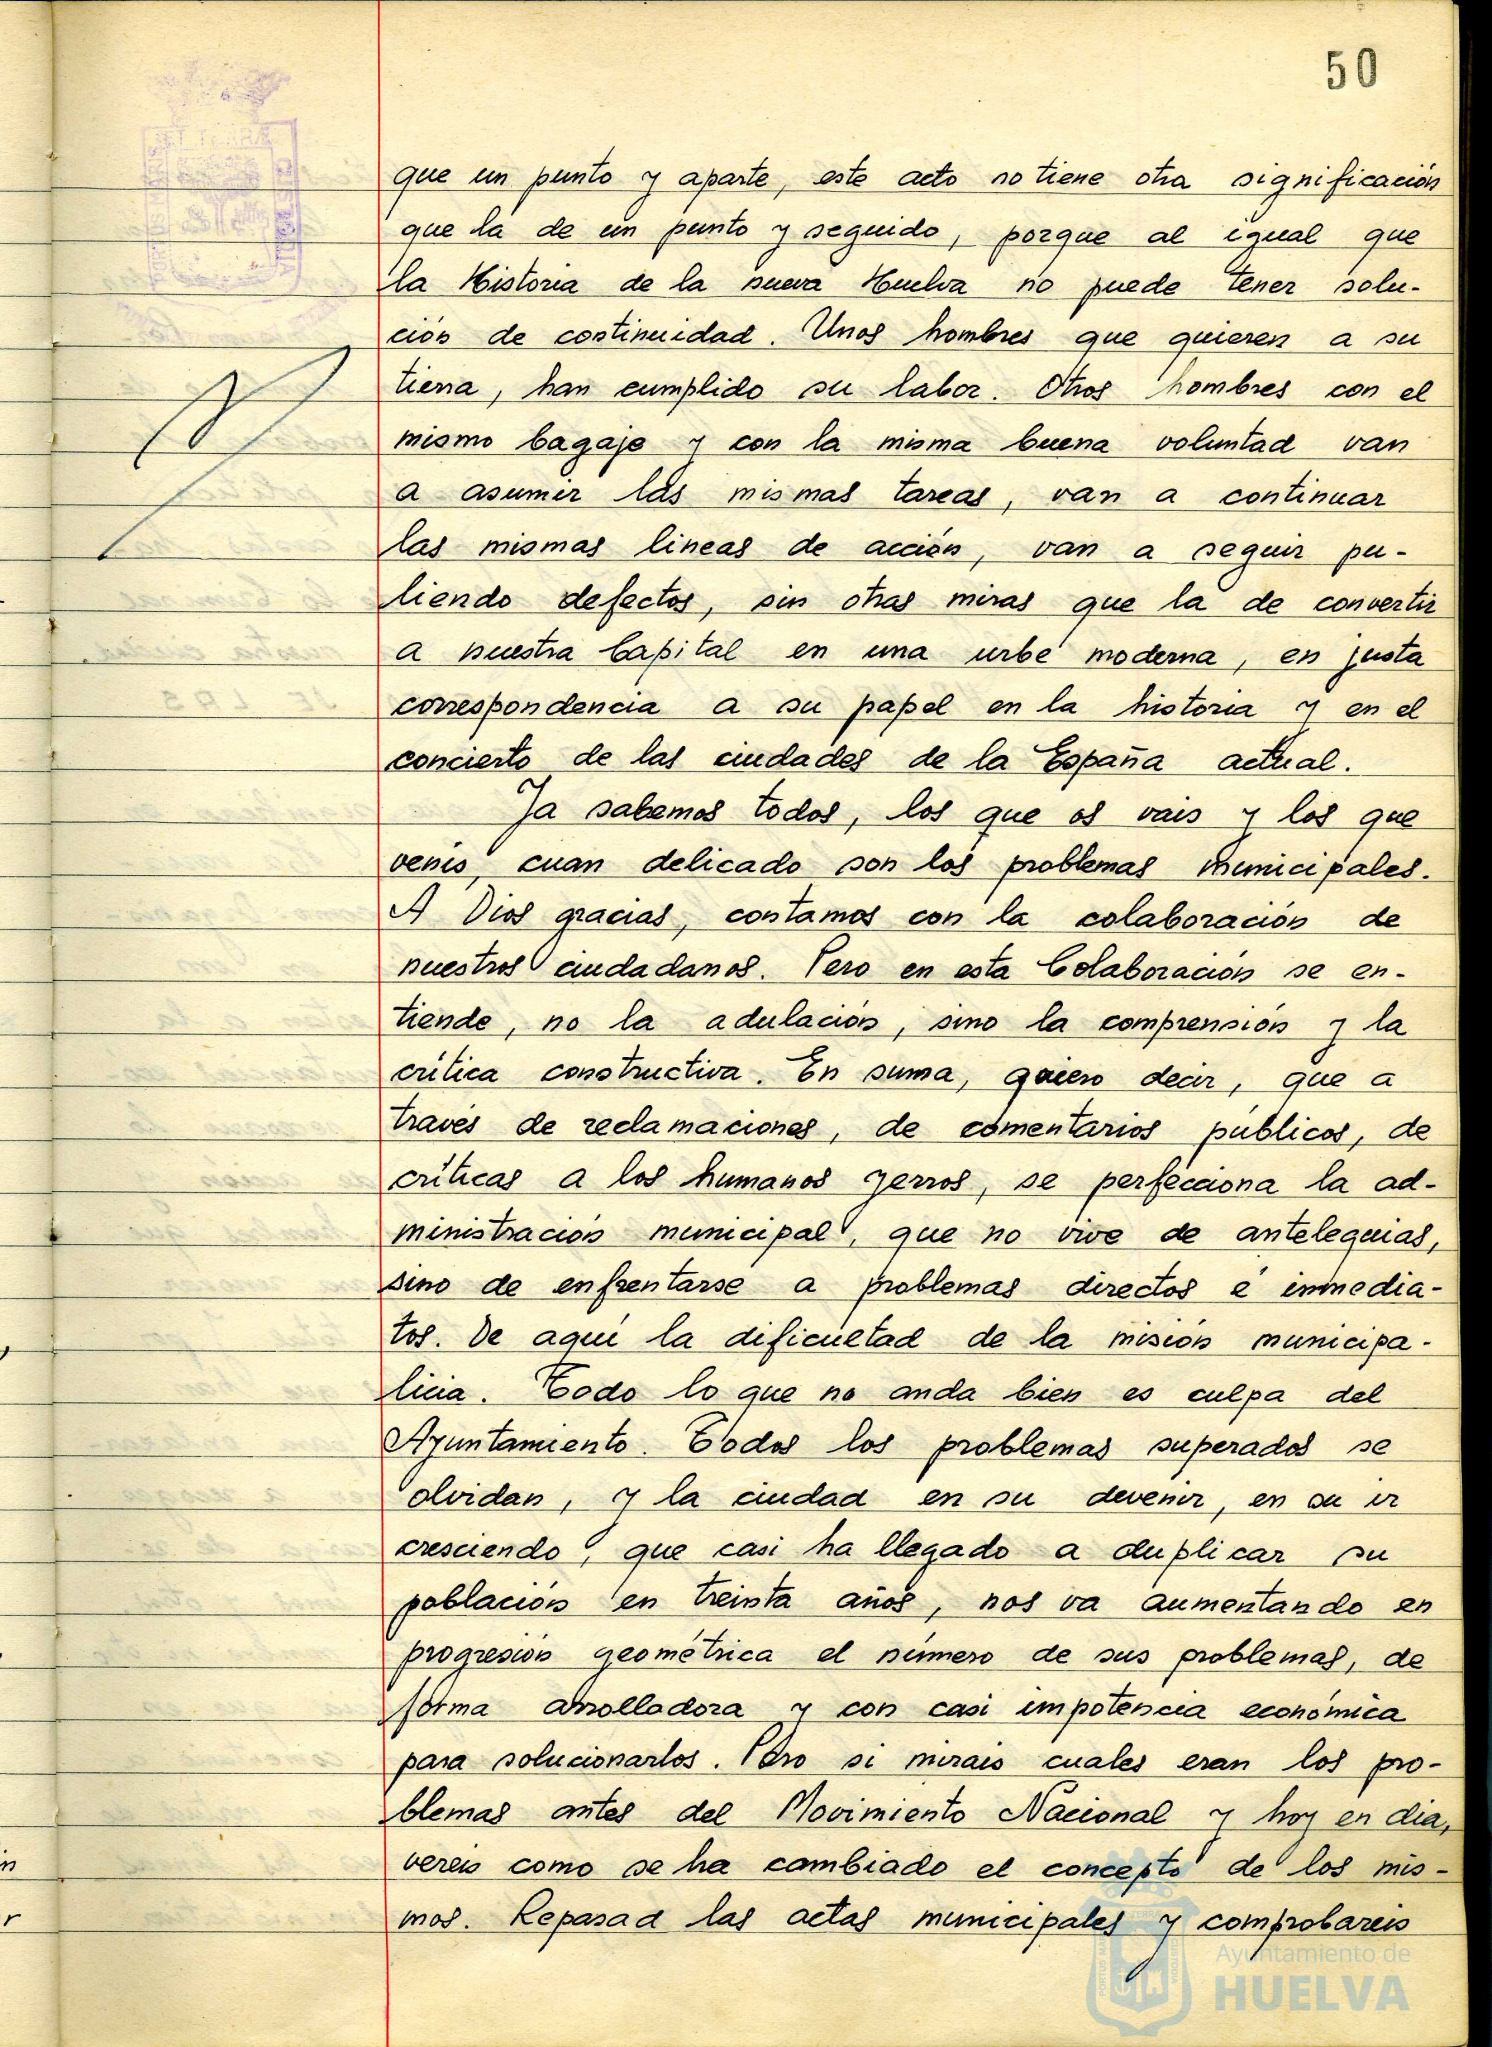 50
que un punto y aparte, este acto no tiene otra significación
que la de un punto y seguido, porque al igual que
la Historia de la nueva Huelva no puede tener solu-
ción de continuidad. Unos hombres que quieren a su
tierra, han cumplido su labor. Otros hombres con el
mismo bagaje y con la misma buena voluntad van
a asumir las mismas tareas, van a continuar
las mismas lineas de acción, van a seguir pu-
liendo defectos, sin otras miras que la de convertir
a nuestra Capital en una urbe moderna, en justa
correspondencia a su papel en la historia y en el
concierto de las ciudades de la España actual.
Ya sabemos todos, los que os vais y los que
venis, cuan delicado son los problemas municipales.
A Dios gracias, contamos con la colaboración de
nuestros ciudadanos. Pero en esta Colaboración se en-
tiende, no la adulación, sino la comprensión y la
crítica constructiva. En suma, quiero decir, que a
través de reclamaciones, de comentarios públicos, de
críticas a los humanos yerros, se perfecciona la ad-
ministración municipal, que no vive de antelequias,
sino de enfrentarse a problemas directos é inmedia-
tos. De aquí la dificultad de la misión municipa-
licia. Todo lo que no anda bien es culpa del
Ayuntamiento. Todos los problemas superados se
olvidan, y la ciudad en su devenir, en su ir
creciendo, que casi ha llegado a duplicar su
población en treinta años, nos va aumentando en
progresión geométrica el número de sus problemas, de
forma arrolladora y con casi impotencia económica
para solucionarlos. Pero si mirais cuales eran los pro-
blemas antes del Movimiento Nacional y hoy en dia,
vereis como se ha cambiado el concepto de los mis-
mos. Repasad las actas municipales y comprobareis
Ayuntamiento de
HUELVA